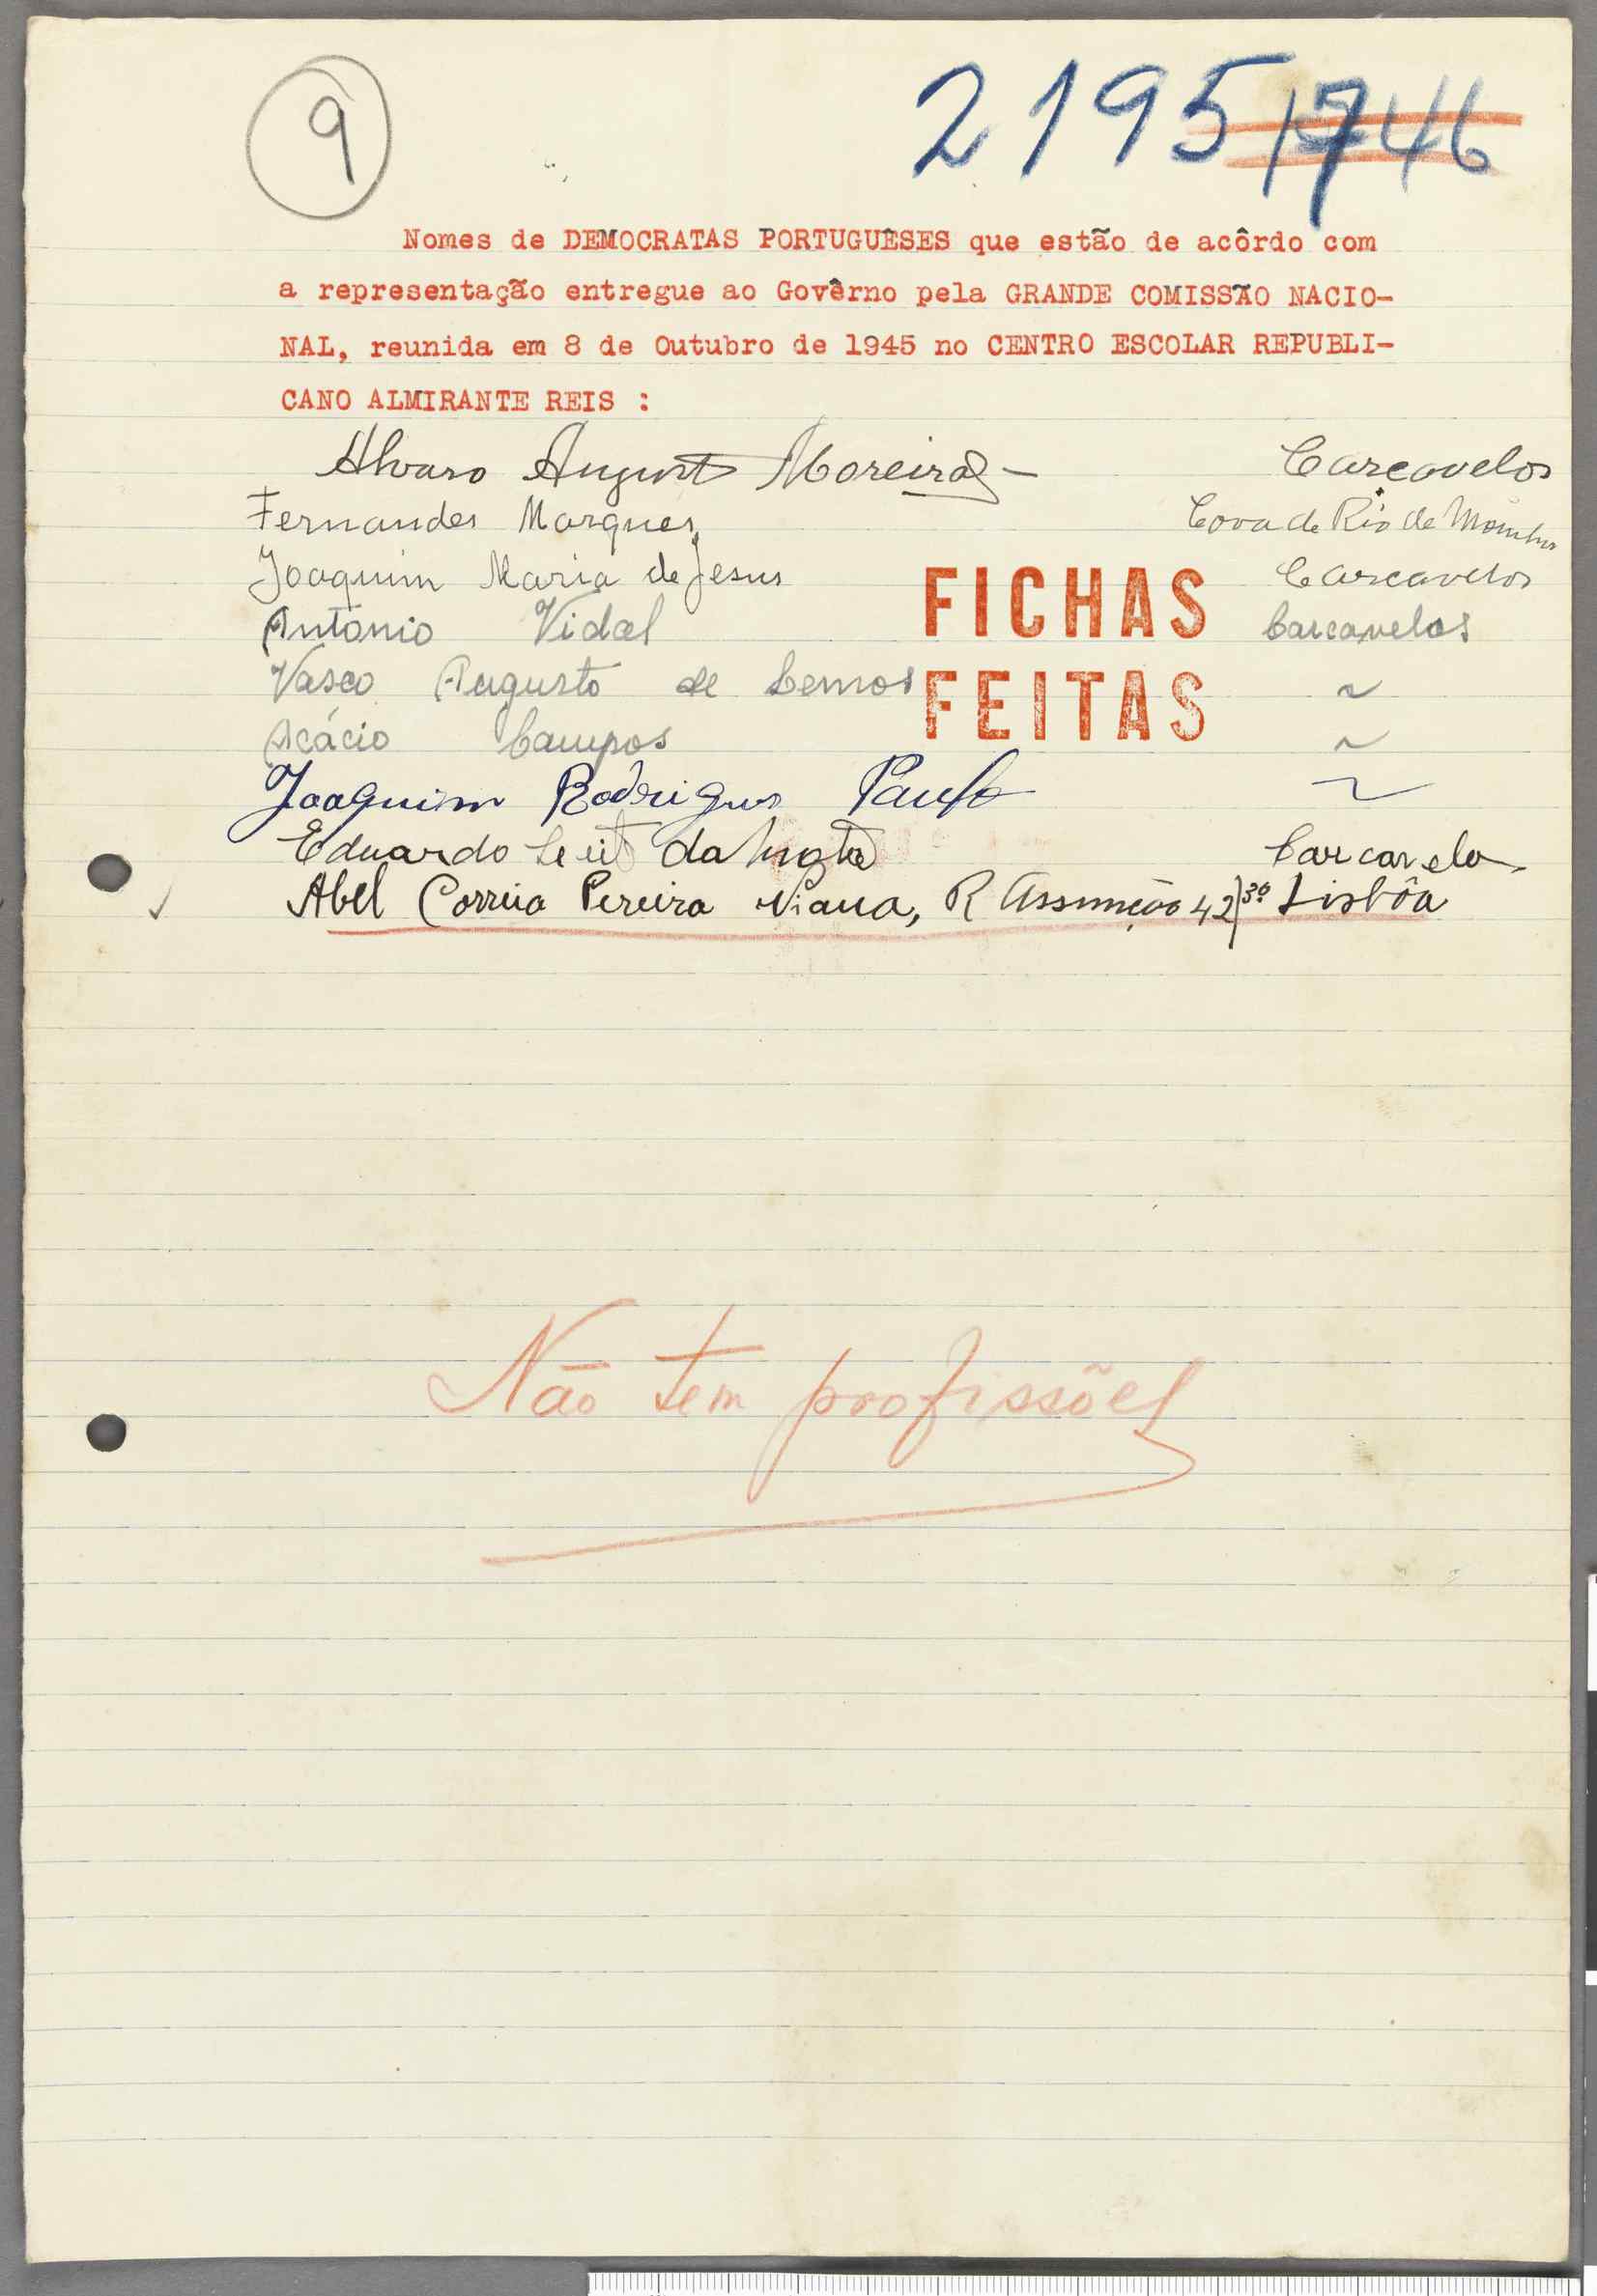 9
2195 1746
Nomes de DEMOCRATAS PORTUGUÊSES que estão de acôrdo com
a representação entregue ao Govêrno pela GRANDE COMISSÃO NACIO-
NAL, reunida em 8 de Outubro de 1945 no CENTRO ESCOLAR REPUBLI-
CANO ALMIRANTE REIS :
Alvaro Augusto Moreira Carcavelos
Fernandes Marques Cova de Rio de
Joaquim Maria de Jesus Carcavelos
Antonio Vidal Carcavelos
Vasco Augusto de Lemos ~
Acácio Campos ~
FICHAS
FEITAS
Joaquim Rodrigues Paulo ~
Eduardo da Carcavelos
Abel Correia Pereira Viana, R Assunção 42, 3º Lisbôa
Não tem profissões